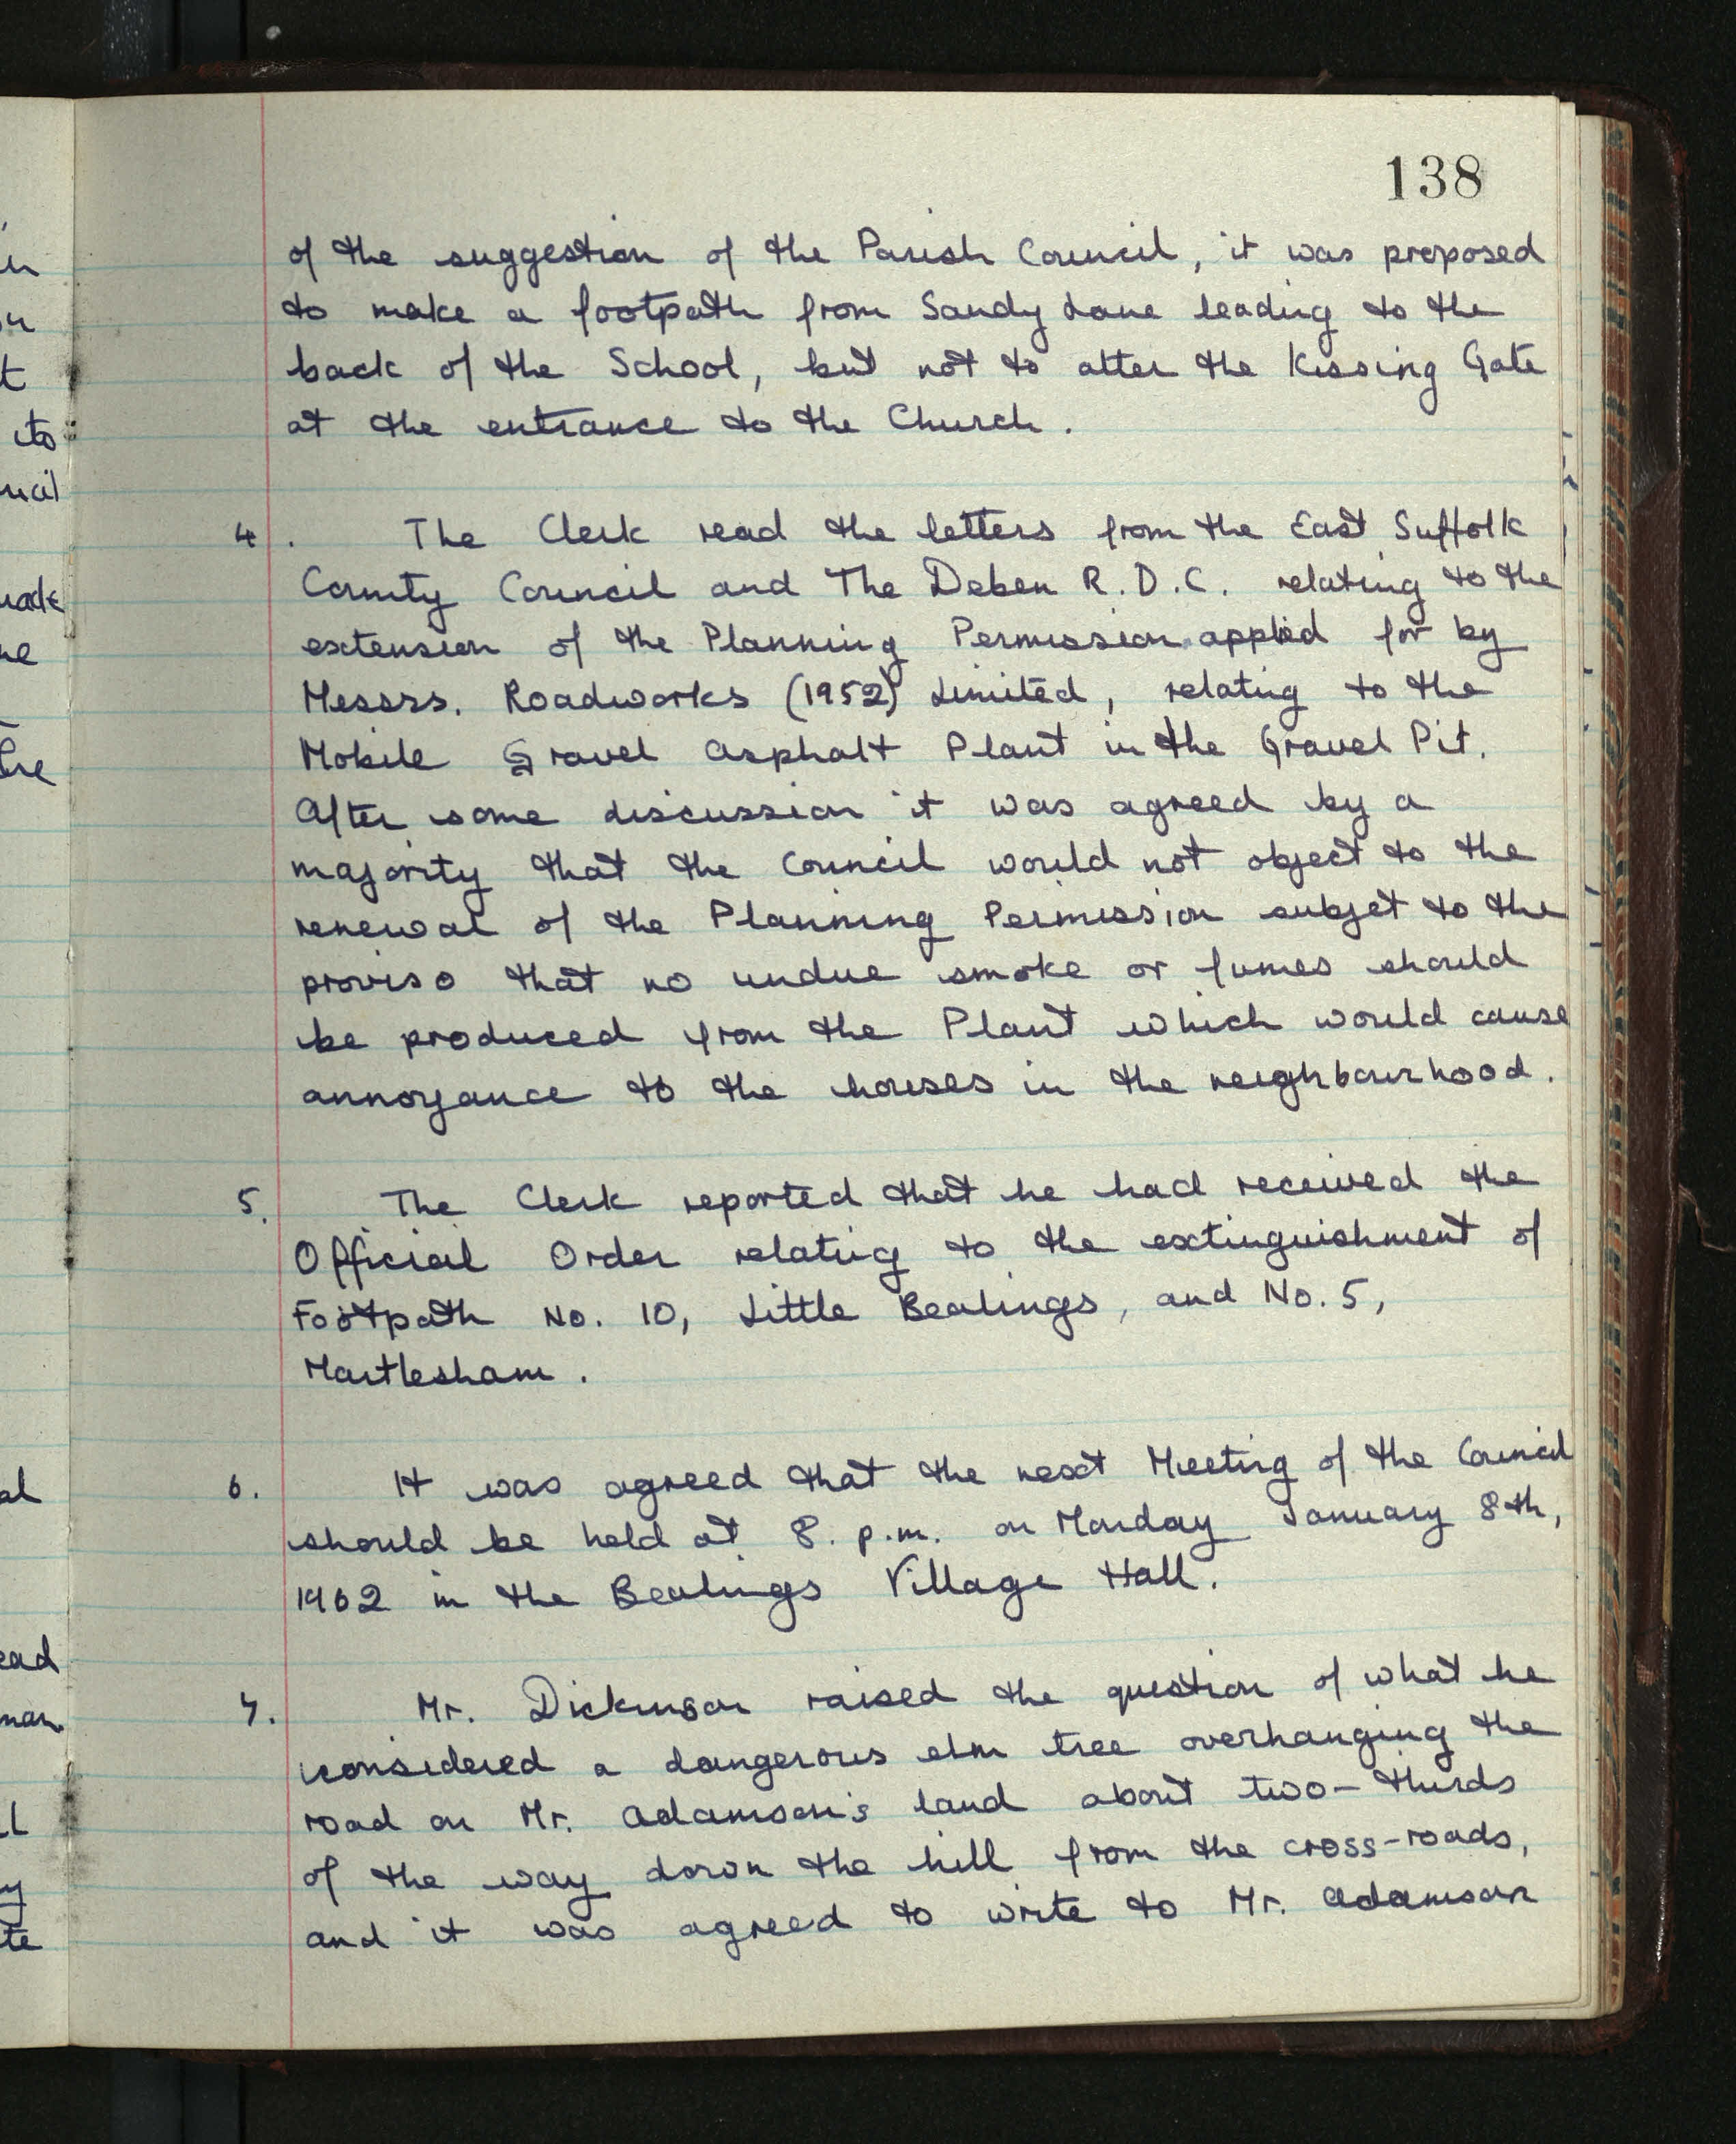 138
of the suggestion of the Parish Council, it was proposed
to make a footpath from Sandy Lane leading to the
back of the School, but not to alter the Kissing Gate
at the entrance to the Church.
4. The Clerk read the letters from the East Suffolk
County Council and The Deben R.D.C. relating to the
extension of the Planning Permission applied for by
Messrs. Roadworks (1952) Limited, relating to the
Mobile Gravel Asphalt Plant in the Gravel Pit.
After some discussion it was agreed by a
majority that the Council would not object to the
renewal of the Planning Permission subjet to the
proviso that no undue smoke or fumes should
be produced from the Plant which would cause
annoyance to the houses in the neighbourhood.
5. The Clerk reported that he had received the
Official Order relating to the extinguishment of
Footpath No. 10, Little Bealings, and No. 5,
Martlesham.
6. It was agreed that the next Meeting of the Council
should be held at 8. p.m. on Monday January 8th,
1962 in the Bealings Village Hall.
7. Mr. Dickinson raised the question of what he
considered a dangerous elm tree overhanging the
road on Mr. Adamson's land about two-thirds
of the way down the hill from the cross-roads,
and it was agreed to write to Mr. Adamson